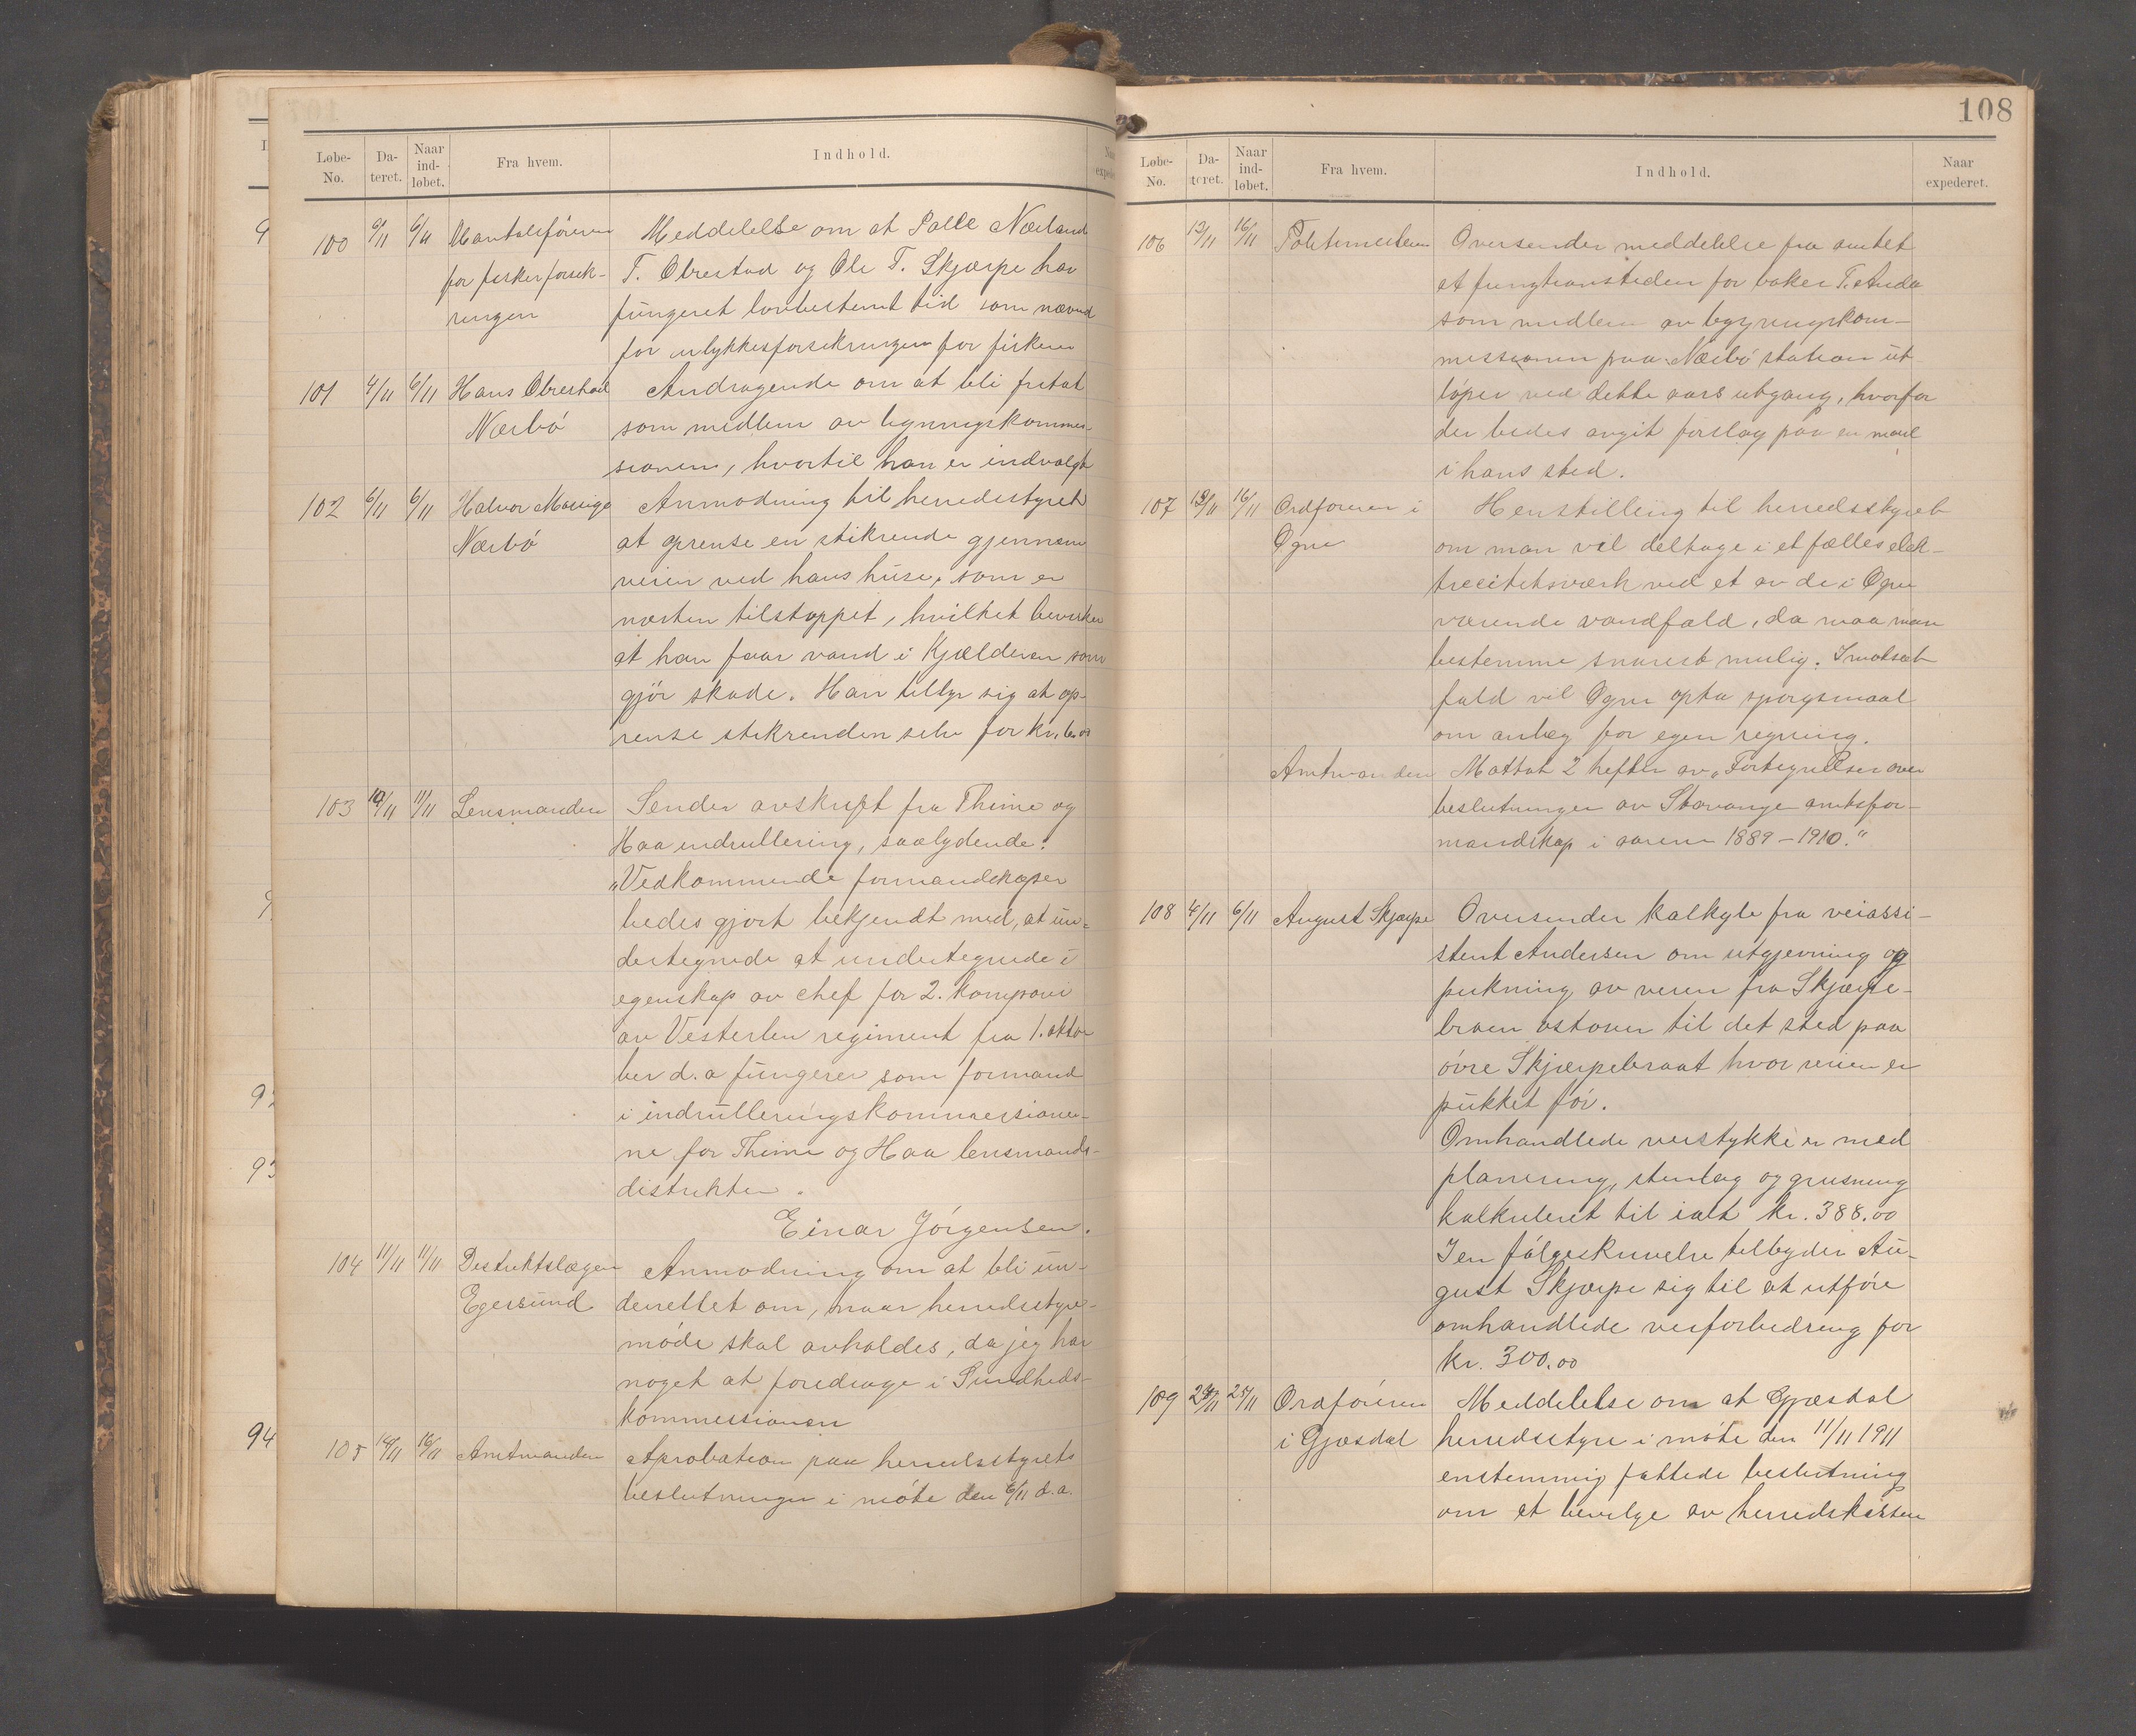 Løbe-No. Dateret. Naar indløbet. Fra hvem. Indhold.
100 6/11 6/11 Mantalsføreren Meddelelse om at Palle Nærland
for fiskerforsik- T. Obrestad og Ole T. Skjærpe har
ringen fungeret lovbestemt tid som nævnd
for ulykkesforsikringen for fiskere
101 4/11 6/11 Hans Obrestad Andragende om at bli fritat
Nærbö som medlem av ligningskommis-
sionen, hvortil han er indvalgt
102 6/11 6/11 Halvor Mauige Anmodning til herredsstyret
Nærbö at oprense en stikrende gjennem
veien ved hans huse, som er
næsten tilstoppet, hvilket bevirker
at han faar vand i Kjælderen som
gjör skade. Han tilbyr sig at op-
rense stikrenden selv for kr.
103 10/11 11/11 Lensmanden Sender avskrift fra Thime og
Haa indrullering, saalydende:
"Vedkommende formandskaper
bedes gjort bekjendt med, at un-
dertegnede at undertegnede i
egenskap av chef for 2. kompani
av Vesterlen regiment fra 1. okto-
ber d.a fungerer som formand
i indrulleringskommissioner-
ne for Thime og Haa lensmands-
distrikter.
Einar Jörgensen.
104 11/11 11/11 Distriktslægen Anmodning om at bli un-
Egersund derrettet om, naar herredsstyre-
möde skal avholdes, da jeg har
noget at foredrage i Sundheds-
kommissionen
105 14/11 16/11 Amtmanden Aprobation paa herredsstyrets
beslutninger i möte den 6/11 d.a.
108
Løbe-No. Dateret. Naar indløbet. Fra hvem. Indhold. Naar expederet.
106 13/11 16/11 Politimesteren Oversender meddelelse fra amtet
at fungtionstiden for baker T. Anda
som medlem av bygningskom-
missionen paa Nærbö station ut
löper ved dette aars utgang, hvorfor
der bedes avgit forslag paa en mand
i hans sted.
107 13/11 16/11 Ordföreren i Henstilling til herredsstyret
Ogne om man vil deltage i et fælles elek-
tricitetsværk ved et av de i Ogne
værende vandfald, da maa man
bestemme snarest mulig. I motsat
fald vil Ogne opta spörgsmaal
om anlæg for egen regning.
Amtmanden Mottat 2 hefter av "Fortegnelser over
beslutninger av Stavanger amtsfor-
mandskap i aarene 1889-1910."
108 4/11 6/11 August Skjærpe Oversender kalkyle fra veiassi-
stent Andersen om utgjevning og
pukning av veien fra Skjærpe-
broen ostover til det sted paa
övre Skjærpebraat hvor veien er
pukket för.
Omhandlede veistykke er med
planering, stenlag og grusning
kalkuleret til ialt kr. 388.00
I en fölgeskrivelse tilbyder Au-
gust Skjærpe sig til at utföre
omhandlede veiforbedring for
kr. 300.00
109 24/11 25/11 Ordföreren Meddelelse om at Gjæsdal
i Gjæsdal herredsstyre i möte den 11/11 1911
enstemmig fattede beslutning
om at bevilge av herredskassen
9
9
92
93
94